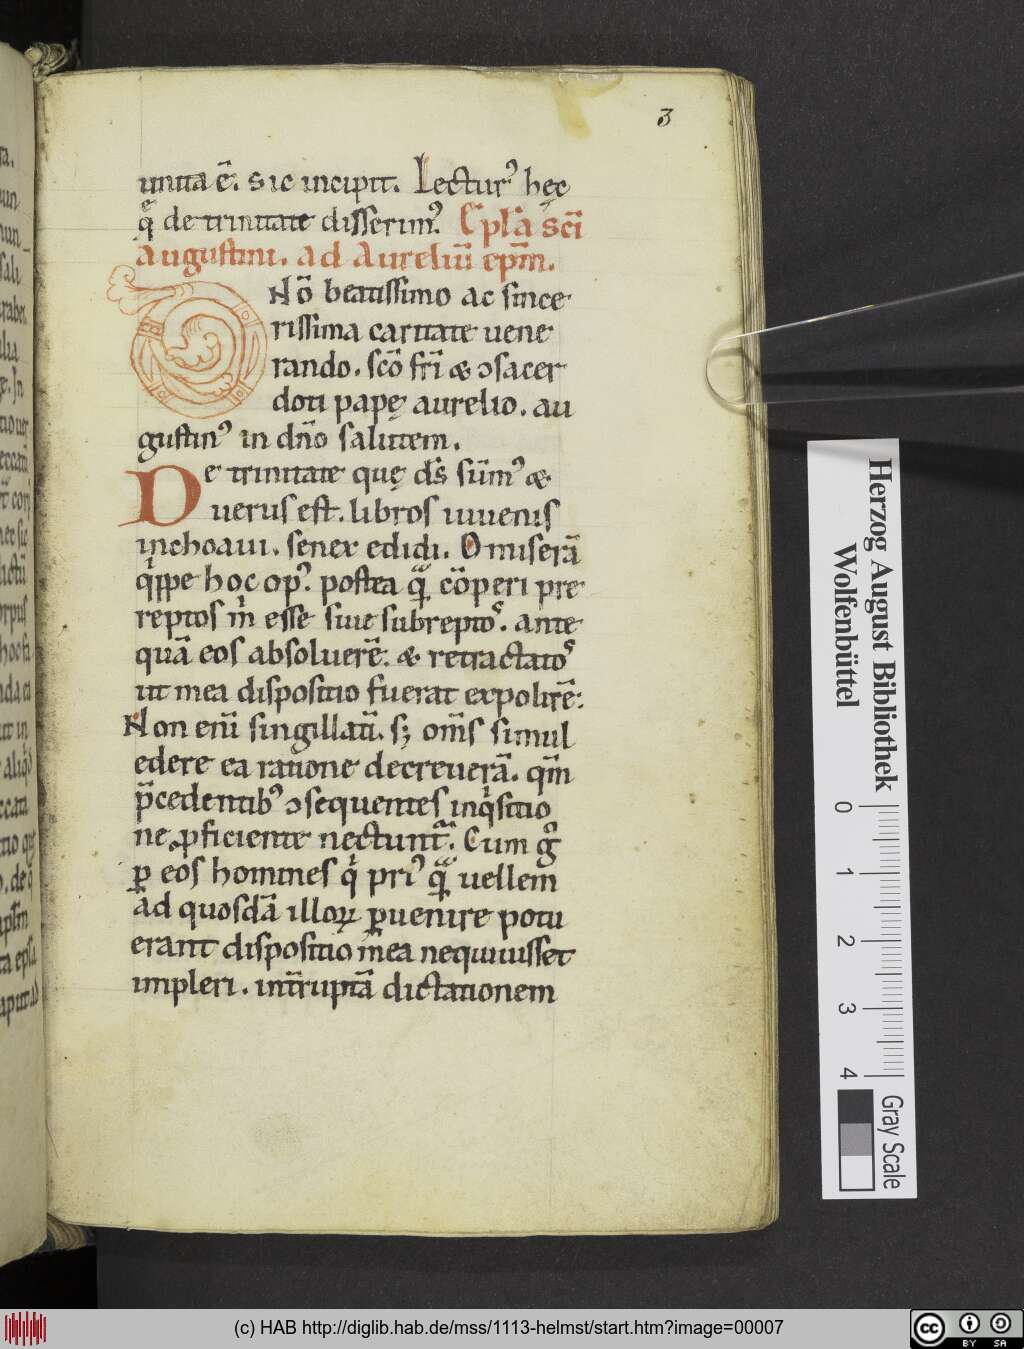 3
unita ē. Sic incipit. Lecturꝰ hęc
q̄ de trinitate disserimꝰ. Epl̄a scī
Augustini. ad Aureliū epm̄.
DNō beatissimo ac since
rissima caritate uene
rando. scō fr̄i & ↄsacer
doti papę aurelio. au
gustinꝰ in dn̄o salutem.
De trinitate quę d̄s sūmꝰ &
uerus est. libros iuuenis
inchoaui. senex edidi. Omiserā
qͥppe hoc opꝰ. postea qͣ̄ cōperi pre
reptos m̄ esse siue subreptoˢ. ante
quā eos absoluerē. & retractatoˢ
ut mea dispositio fuerat expolirē:
Non enī singillatī. sꝫ om̄s simul
edere ea ratione decreuerā. qm̄
p̄cedentibꝰ ↄsequentes inqͥsitio
ne ꝓficiente nectunt᷑. Cum gͦ
ꝑ eos homines qͥ priꝰ qͣ̄ uellem
ad quosdā illoꝝ ꝑuenire potu
erant dispositio mea nequiuisset
impleri. int̄ruptā dictationem
Herzog August Bibliothek
Wolfenbüttel
0 1 2 3 4
Gray Scale
(c) HAB http://diglib.hab.de/mss/1113-helmst/start.htm?image=00007
cc BY SA